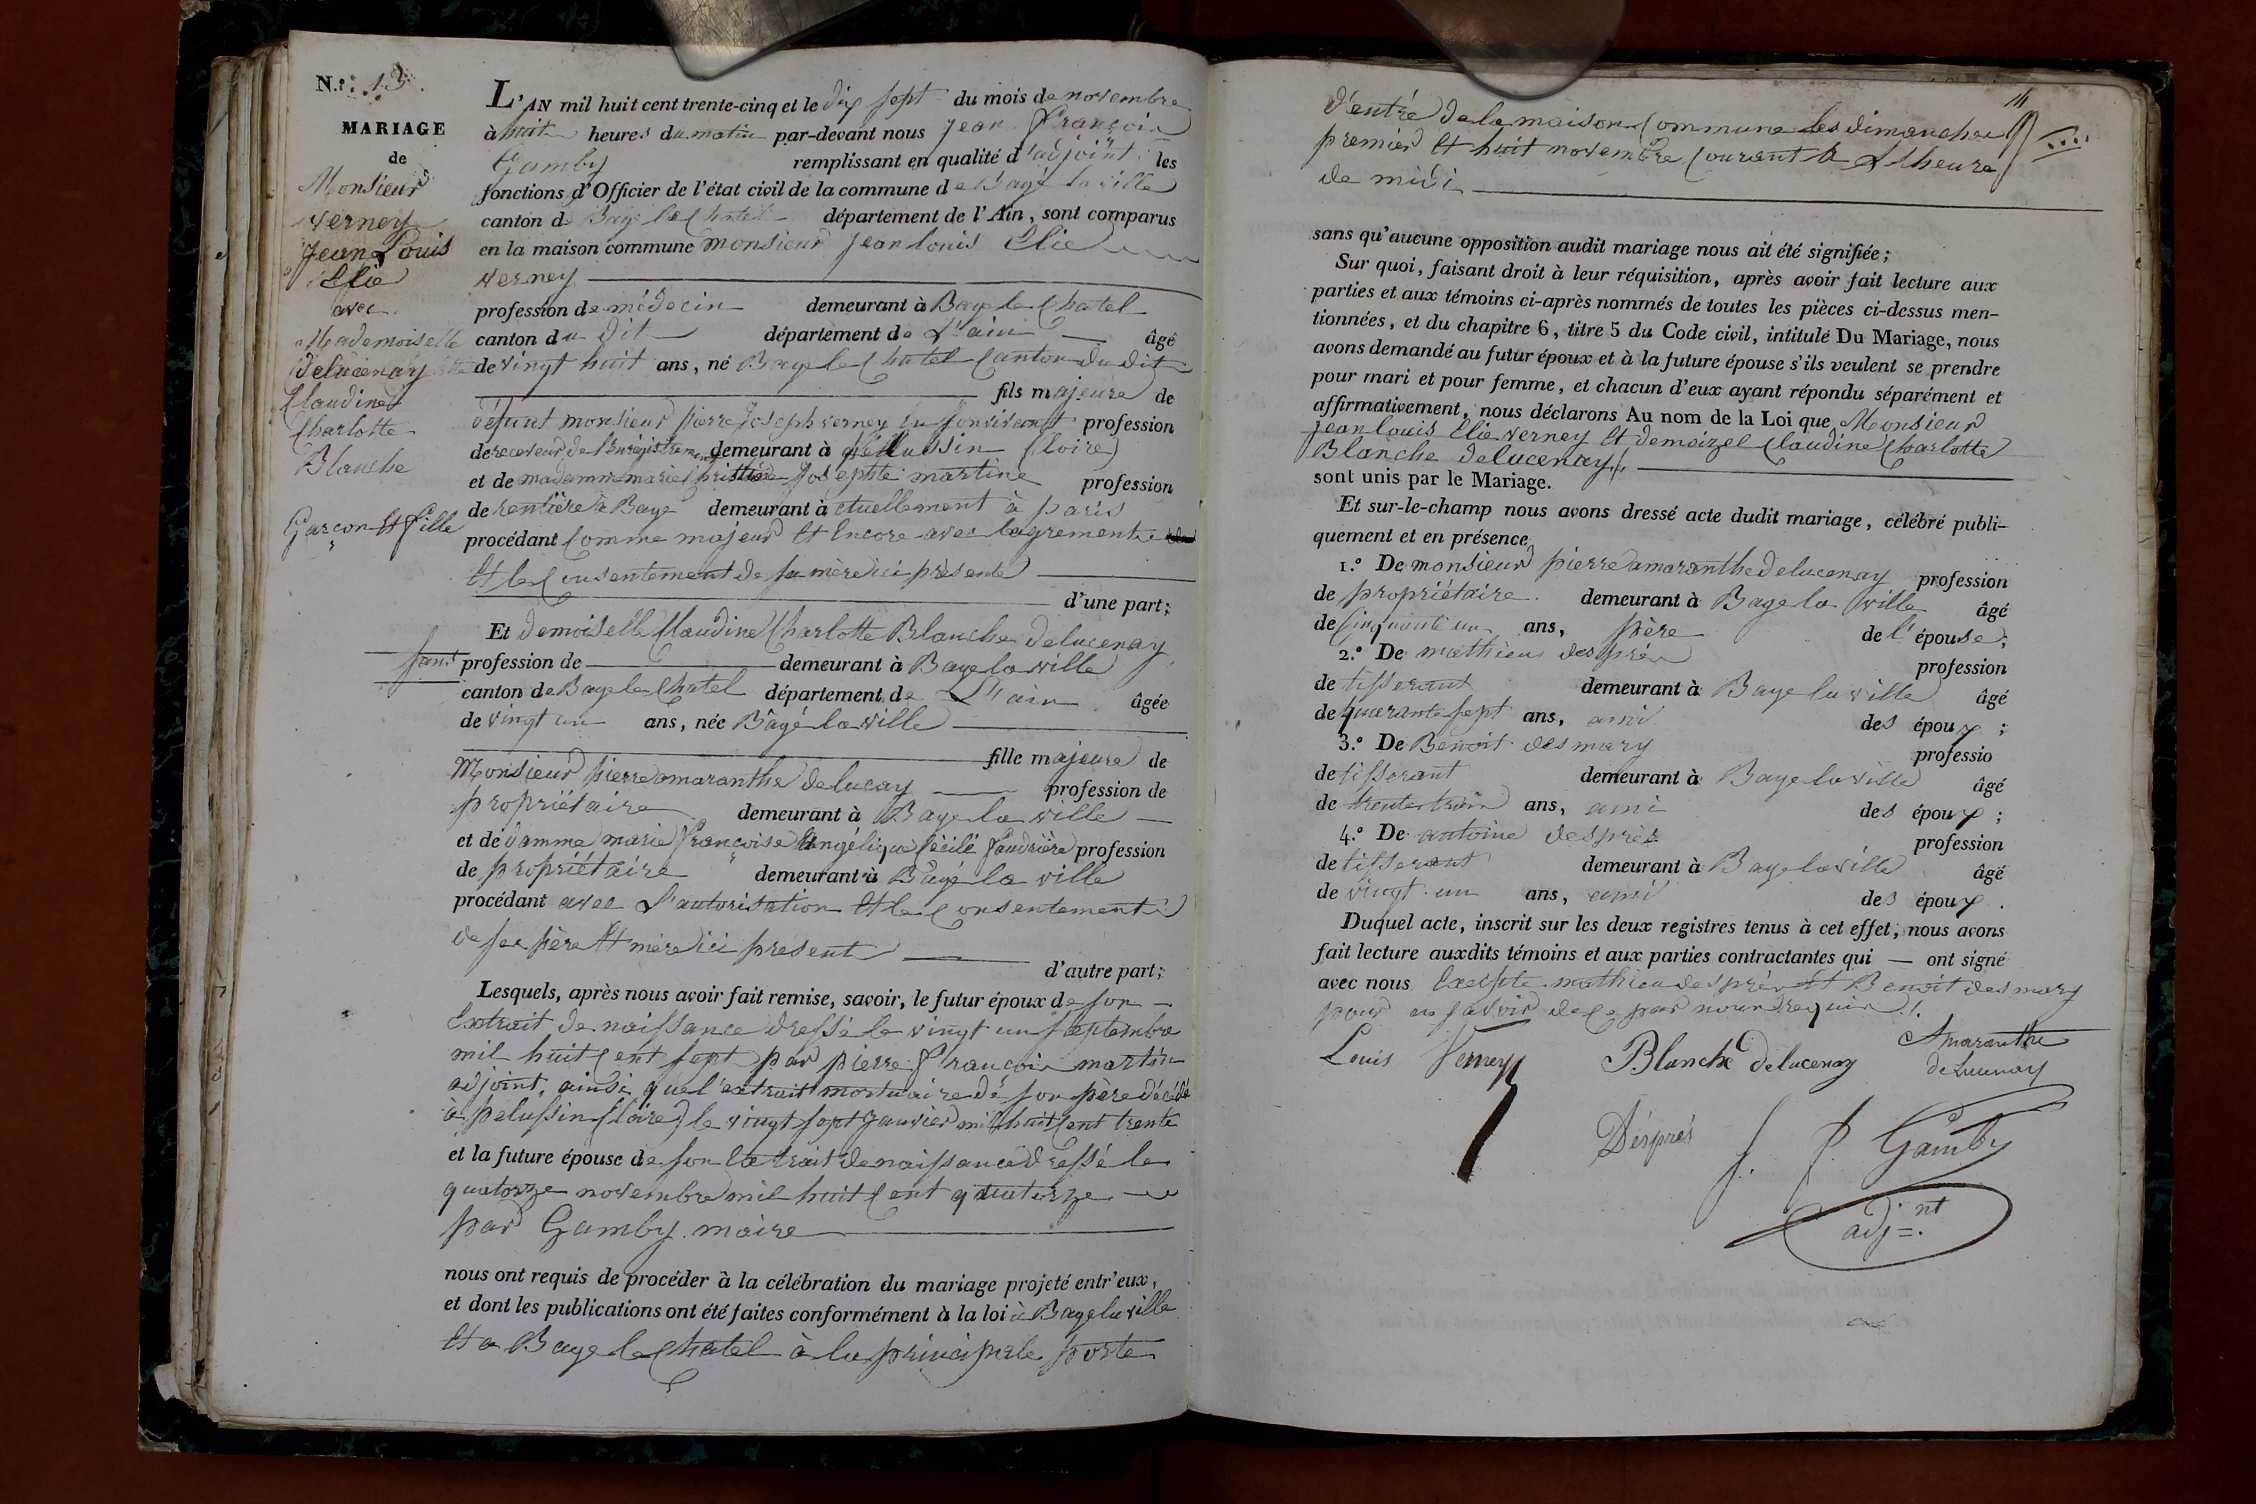 N.º 13.
MARIAGE
de
Monsieur
verney
Jean Louis
Elie
avec
Mademoiselle
Delucenay
Claudine
Charlotte
Blanche
Garçon Et fille
L'AN mil huit cent trente-cinq et le dix sept du mois de novembre
à huit heures du matin par-devant nous Jean François
Gamby remplissant en qualité d'adjoint les
fonctions d'Officier de l'état civil de la commune de Bagé la ville
canton de Bage le Chatel département de l'Ain, sont comparus
en la maison commune monsieur Jean louis Elie
verney
profession de médecin demeurant à Bage le Chatel
canton du dit département de L'ain âgé
de vingt huit ans, né Bage le Chatel Canton du dit
fils majeure de
défunt monsieur pierre Joseph verney en son vivant profession
de receveur de l'enrégistrement demeurant à pélussin (loire)
et de madamme marie Josephte martine profession
de rentière à Bage demeurant à ctuellement à paris
procédant Comme majeur Et Encore avec lagrement
Et le Consentement de sa mère ici présente
d'une part;
Et demoiselle Claudine Charlotte Blanche delucenay
sans profession de demeurant à Bage la ville
canton de Bage le Chatel département de L'ain âgée
de vingt un ans, née Bâgé la ville
fille majeure de
Monsieur pierre amaranthe delucay profession de
propriétaire demeurant à Bage la ville
et de damme marie françoise angélique Cécile profession
de propriétaire demeurant à Bagé la ville
procédant avec L'autorisation Et le Consentement
de ses père Et mère ici présent
d'autre part;
Lesquels, après nous avoir fait remise, savoir, le futur époux de son
Extrait de naissance dressé le vingt un septembre
mil huit Cent sept par pierre François martin
adjoint, ainsi que l'extrait mortuaire de son père décédé
à pelussin (loire) le vingt sept Janvier mil huit Cent trente
et la future épouse de son Extrait de naissance dressé le
quatorze novembre mil huit Cent quatorze
par Gamby maire
nous ont requis de procéder à la célébration du mariage projeté entr'eux,
et dont les publications ont été faites conformément à la loi à Bage la ville
Et a Bage le Chatel à la principale porte
d'entré de la maison Commune les dimanches
premier Et huit novembre Courant à L'heure
de midi
sans qu'aucune opposition audit mariage nous ait été signifiée;
Sur quoi, faisant droit à leur réquisition, après avoir fait lecture aux
parties et aux témoins ci-après nommés de toutes les pièces ci-dessus men-
tionnées, et du chapitre 6, titre 5 du Code civil, intitulé Du Mariage, nous
avons demandé au futur époux et à la future épouse s'ils veulent se prendre
pour mari et pour femme, et chacun d'eux ayant répondu séparément et
affirmativement, nous déclarons Au nom de la Loi que Monsieur
Jean louis Elie verney Et demoizel Claudine Charlotte
Blanche delucenay
sont unis par le Mariage.
Et sur-le-champ nous avons dressé acte dudit mariage, célébré publi-
quement et en présence
1.º De monsieur pierre amaranthe delucenay profession
de propriétaire demeurant à Bage la ville âgé
de Cinquante un ans, père de l'épouse;
2.º De mathieu després profession
de tisserant demeurant à Bage la ville âgé
de quarante sept ans, ami des époux;
3.º De Benoit desmary professio
de tisserant demeurant à Bage la ville âgé
de trente trois ans, ami des époux;
4.º De antoine després profession
de tisserant demeurant à Bage la ville âgé
de vingt un ans, ami des époux.
Duquel acte, inscrit sur les deux registres tenus à cet effet, nous avons
fait lecture auxdits témoins et aux parties contractantes qui — ont signé
avec nous Excepte mathieu després Et Benoit desmary
pour ne savoir de ce par nous requis.
Louis Verney
Blanche delucenay
Amaranthe
delucenay
Després
J. F. Gamby
adj.nt